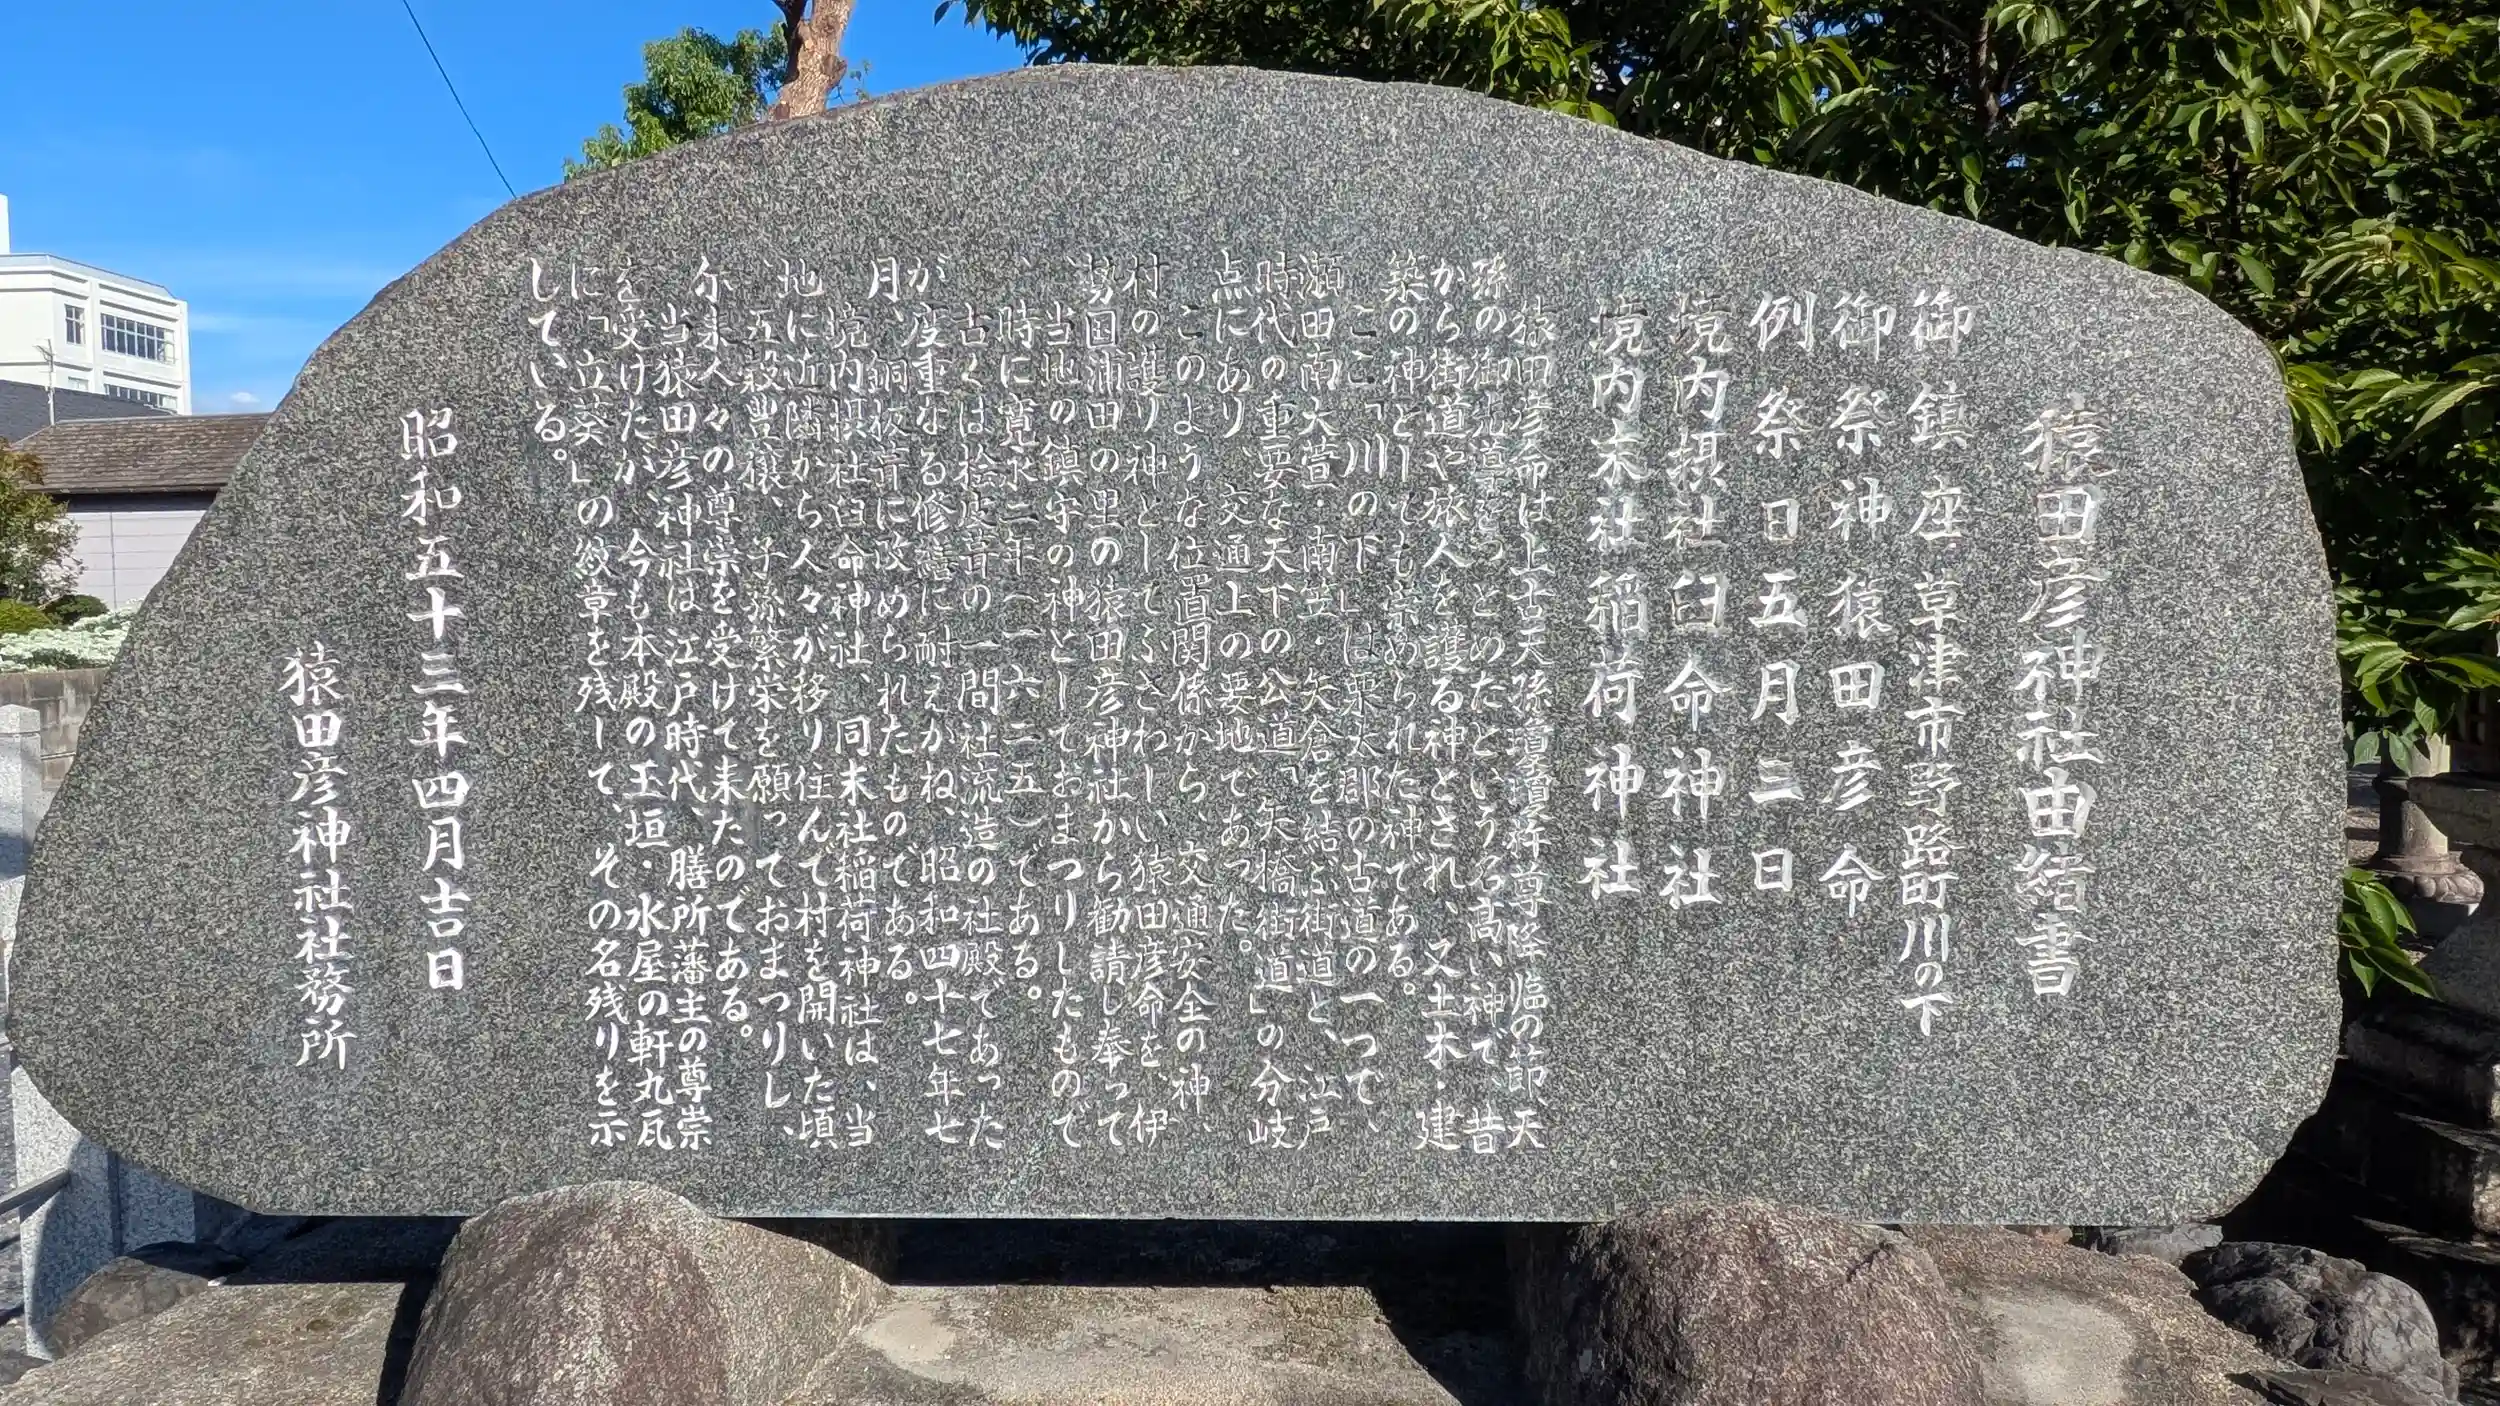 猿田彦神社由緒書
御鎮座 草津市野路町川の下
御祭神 猿田彦命
例祭日 五月三日
境内摂社 臼命神社
境内末社 稲荷神社
猿田彦命は上古天孫瓊瓊杵尊降臨の節、天
孫の御先導をつとめたという名高い神で、昔
から街道や旅人を護る神とされ、又土木・建
築の神としても崇められた神である。
ここ「川の下」は栗太郡の古道の一つで、
瀬田南大萱・南笠・矢倉を結ぶ街道と、江戸
時代の重要な天下の公道「矢橋街道」の分岐
点にあり、交通上の要地であった。
このような位置関係から、交通安全の神、
村の護り神としてふさわしい猿田彦命を、伊
勢国浦田の里の猿田彦神社から勧請し奉って
、当地の鎮守の神としておまつりしたもので
、時に寛永二年(一六二五)である。
古くは桧皮葺の一間社流造の社殿であった
が度重なる修繕に耐えかね、昭和四十七年七
月、銅板葺に改められたものである。
境内摂社臼命神社、同末社稲荷神社は、当
地に近隣から人々が移り住んで村を開いた頃
、五穀豊穣、子孫繁栄を願っておまつりし、
尓来人々の尊崇を受けて来たのである。
当猿田彦神社は江戸時代、膳所藩主の尊崇
を受けたが、今も本殿の玉垣・水屋の軒丸瓦
に「立葵」の紋章を残して、その名残りを示
している。
昭和五十三年四月吉日
猿田彦神社社務所